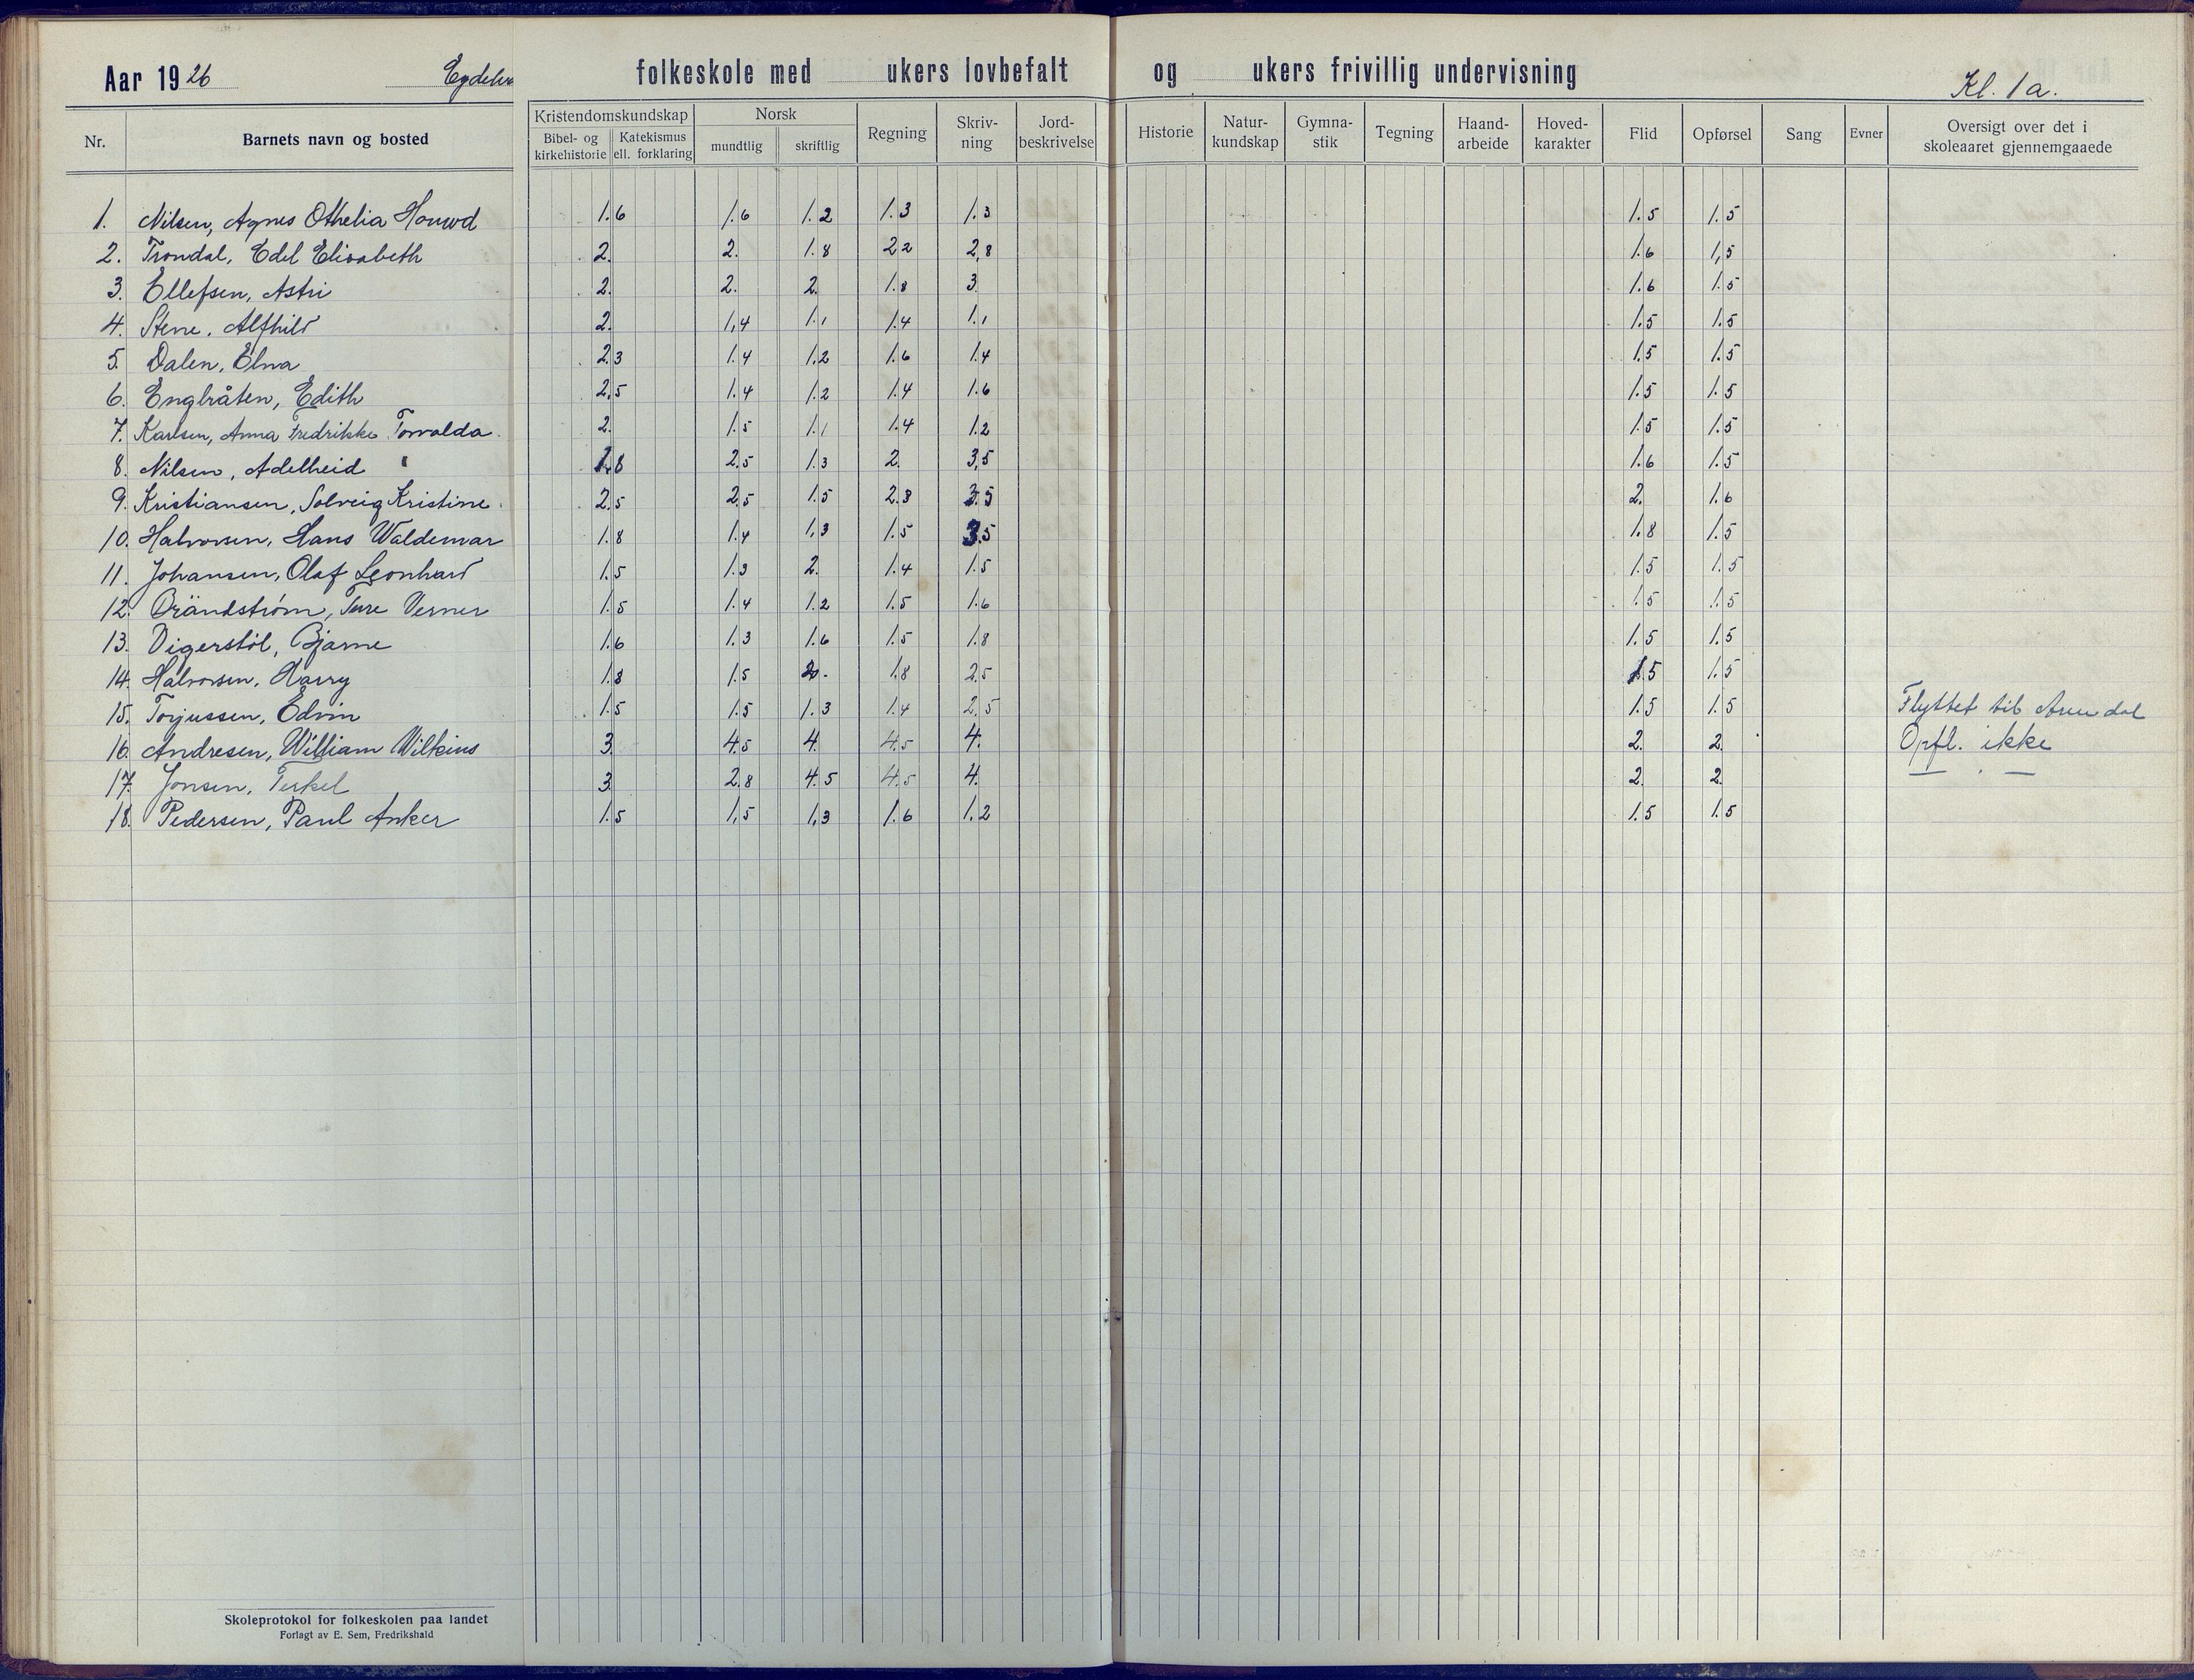 Aar 1926 Eydehv folkeskole med ukers lovbefalt og ukers frivillig undervisning Kl. 1a.
Nr. Barnets navn og bosted Kristendomskundskap Bibel- og kirkehistorie Katekismus ell. forklaring Norsk mundtlig skriftlig Regning Skriv-ning Jord-beskrivelse Historie Natur-kundskap Gymna-stik Tegning Haand-arbeide Hoved-karakter Flid Opførsel Sang Evner Oversigt over det i skoleaaret gjennemgaaede
1. Nilsen, Agnes Othelia 1.6 1.6 1.2 1.3 1.3 1.5 1.5
2. Trondal, Edel Elisabeth 2. 2. 1.8 2 2 2,8 1.6 1,5
3. Ellefsen, Astri 2. 2. 2. 1.8 3 1.6 1.5
4. Stene, Alfhild 2. 1,4 1.1 1.4 1.1 1.5 1.5
5. Dalen, Elna 2.3 1.4 1.2 1.6 1.4 1.5 1.5
6. Englråten, Edith 2,5 1.4 1.2 1.4 1.6 1.5 1.5
7. Karlsen, Anna Fredrikke Torvalda. 2. 1.5 1.1 1.4 1.2 1.5 1.5
8. Nilsen, Adelheid 1.8 2.5 1.3 2. 3,5 1.6 1.5
9. Kristiansen, Solveig Kristine. 2.5 2.5 1.5 2.3 3.5 2. 1.6
10. Halvorsen, Hans Waldemar 1.8 1.4 1,3 1.5 3.5 1.8 1.5
11. Johansen, Olaf Leonhard 1.5 1.3 2. 1.4 1.5 1.5 1.5
12. Brändstrøm, Ture Verner 1.5 1.4 1.2 1.5 1.6 1.5 1.5
13. Vigerstøl, Bjarne 1.6 1.3 1.6 1.5 1.8 1.5 1.5
14. Halvorsen, Harry 1.8 1.5 2. 1.8 2.5 1.5 1.5
15. Torjussen, Edvin 1.5 1.5 1.3 1.4 2.5 1.5 1.5 Flyttet til Arendal
16. Andresen, William Wilkins 3. 4.5 4. 4.5 4. 2. 2. Opfl. ikke
17. Jonsen, Terkel 3. 2.8 4.5 4.5 4. 2. 2. — . —
18. Pedersen, Paul Anker 1.5 1,5 1,3 1.6 1.2 1.5 1.5
Skoleprotokol for folkeskolen paa landet
Forlagt av E. Sem, Fredrikshald